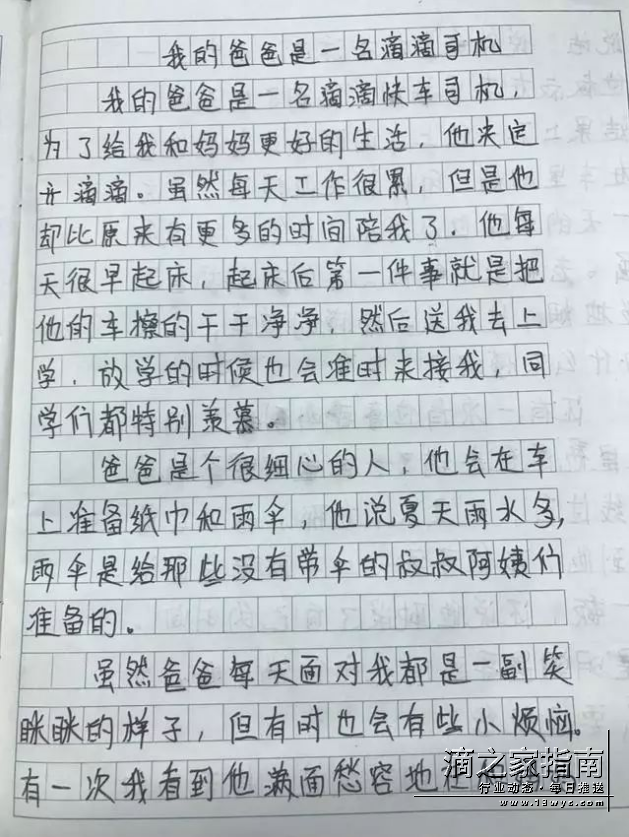 我的爸爸是一名滴滴司机
我的爸爸是一名滴滴快车司机，
为了给我和妈妈更好的生活，他决定
开滴滴。虽然每天工作很累，但是他
却比原来有更多的时间陪我了．他每
天很早起床，起床后第一件事就是把
他的车擦的干干净净，然后送我去上
学．放学的时候也会准时来接我，同
学们都特别羡慕。
爸爸是个很细心的人，他会在车
上准备纸巾和雨伞，他说夏天雨水多，
雨伞是给那些没有带伞的叔叔阿姨们
准备的。
虽然爸爸每天面对我都是一副笑
眯眯的样子，但有时也会有些小烦恼。
有一次我看到他满面愁容地在
滴之家指南
行业动态·每日推送
www.13wyc.com